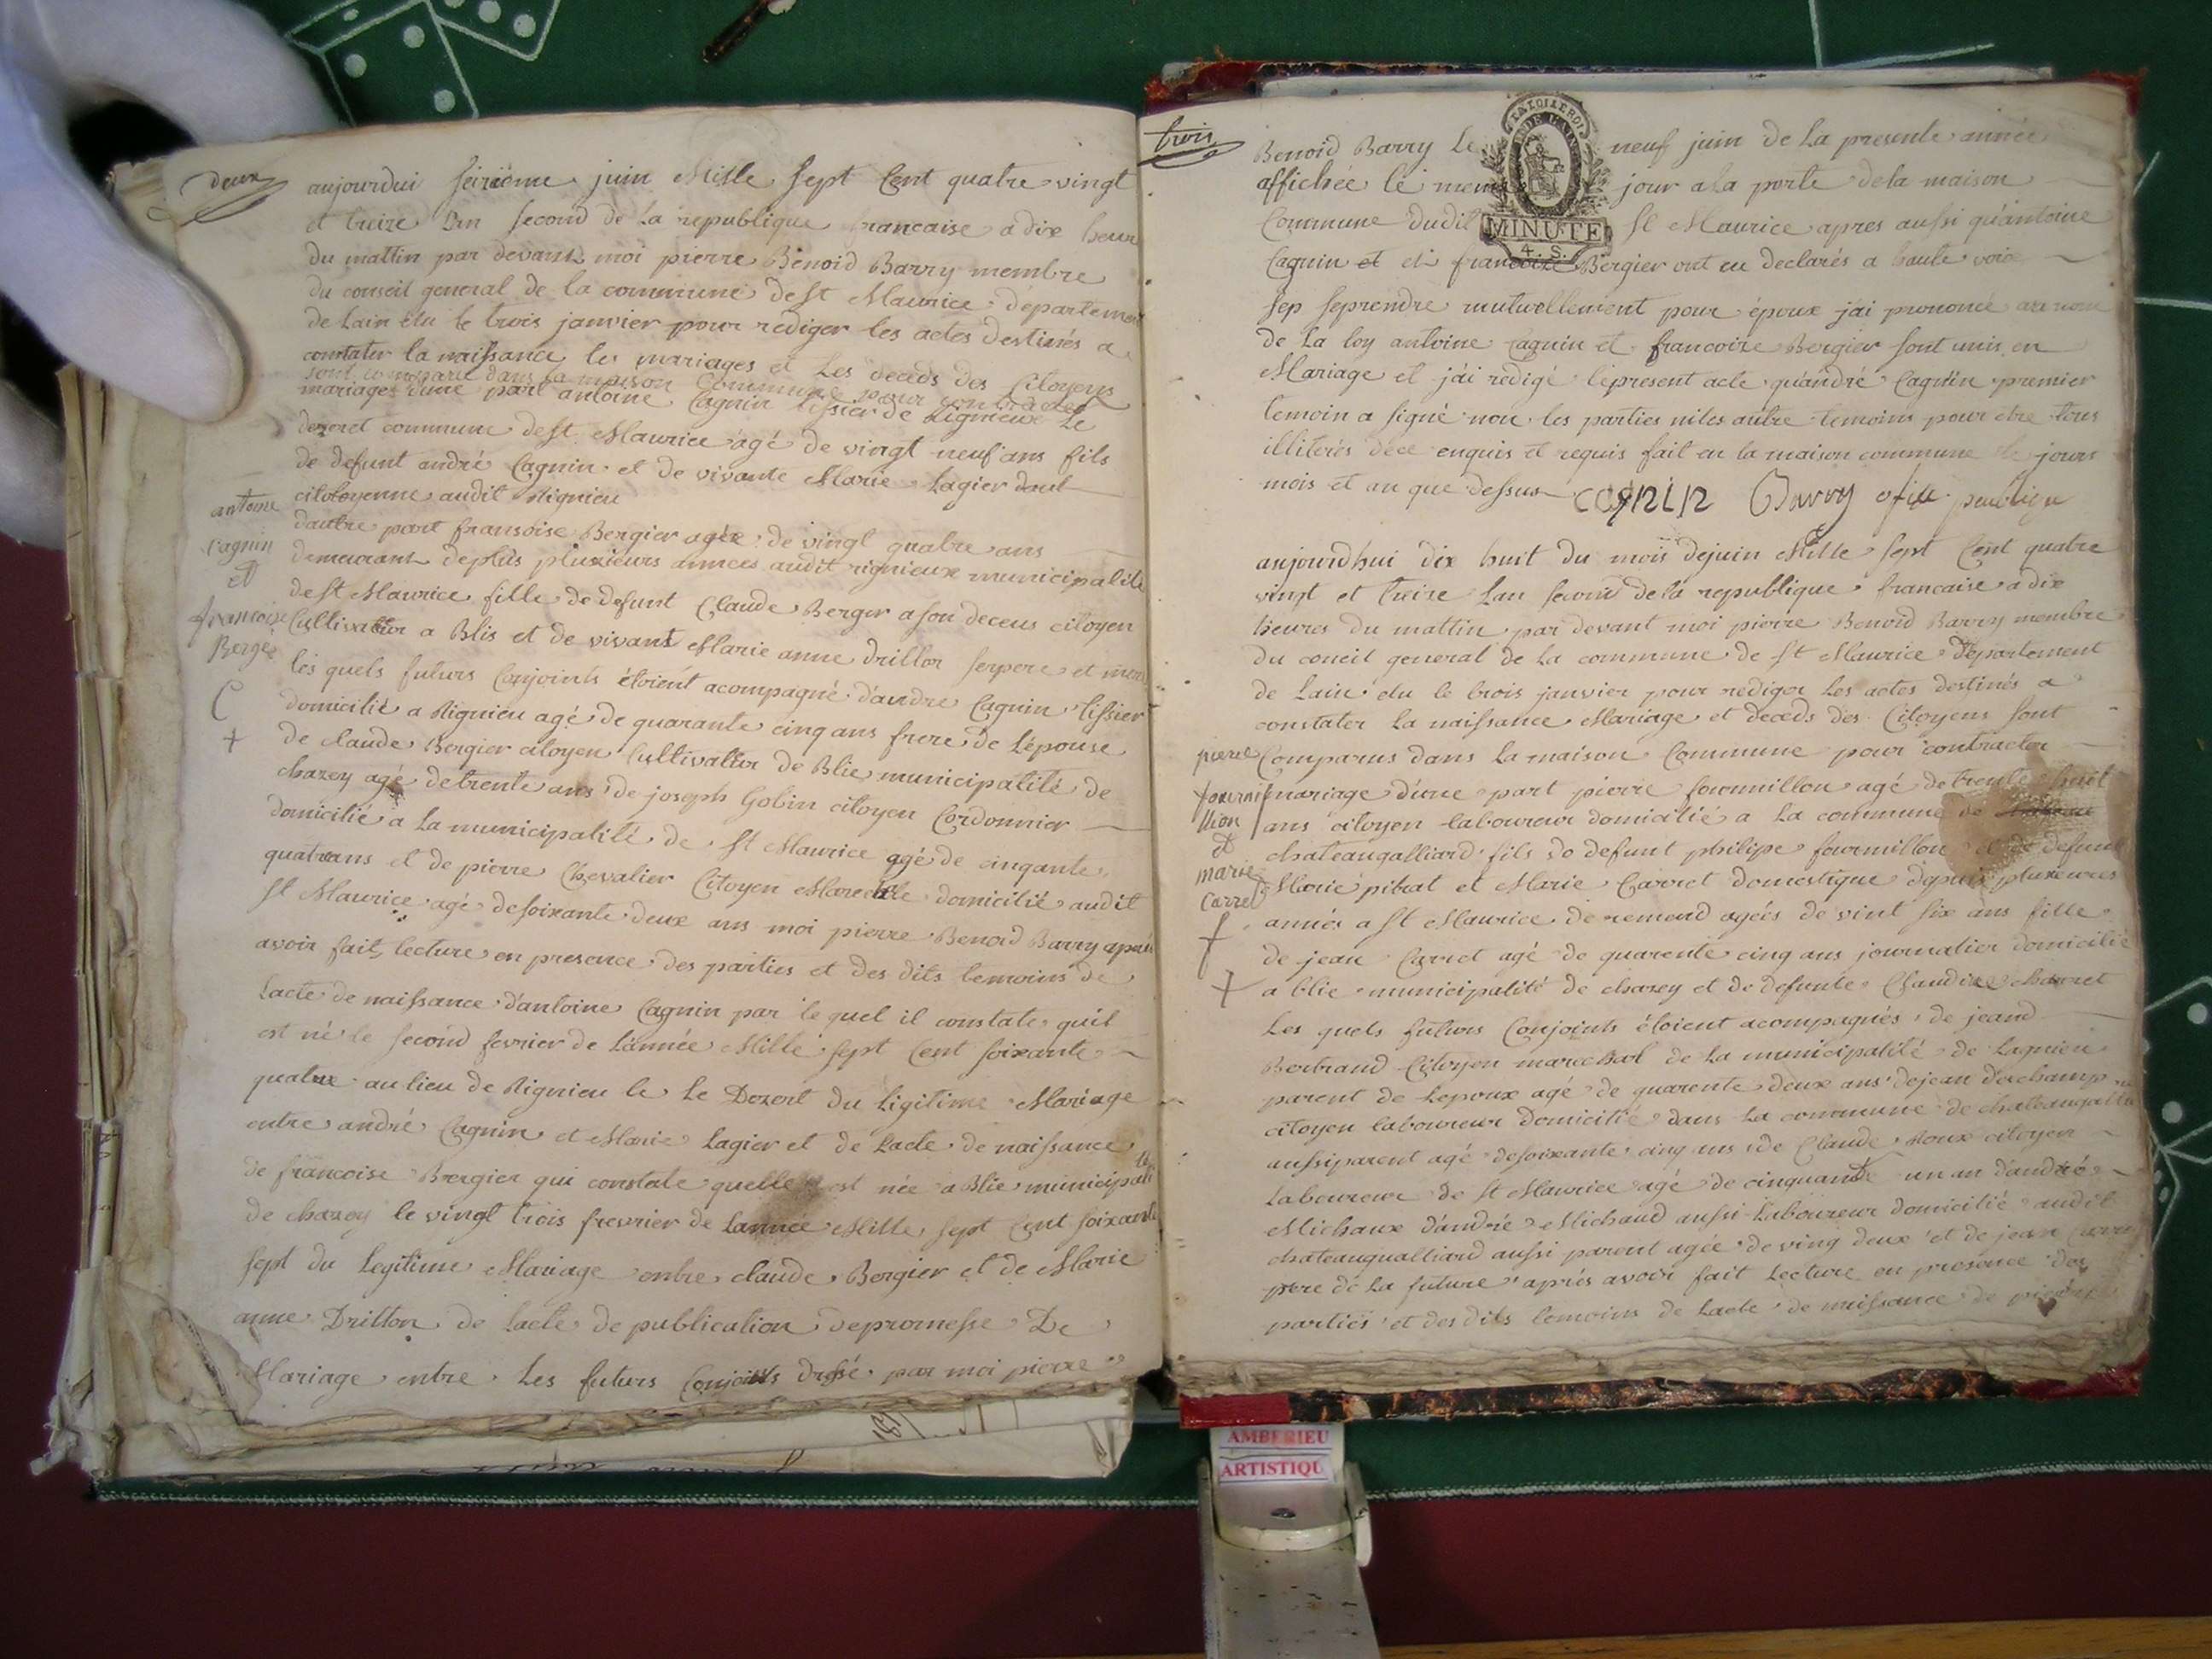 deux
aujourdui seizieme juin Mille sept Cent quatre vingt
et treize Lan second de La republique francaise a dix heur
du mattin par devant moi pierre Benoid Barry membre
du conseil general de la commune de St Maurice departement
de Lain elu le trois janvier pour rediger les actes destinés a
constater la naissance les mariages et Les deceds des Citoyens
sont comparu dans la maison Commune pour contracter
mariages d'une part antoine Cagnin tissier de Rignieux Le
dezeret commune de St Maurice agé de vingt neuf ans fils
de defunt andré Cagnin et de vivante Marie Lagier
citotoyenne audit Rignieu
antoine
cagnin
et
francoise
Bergé
C
+
dautre part fransoise Bergier agée de vingt quatre ans
demeurant deplus pluxieurs années audit rignieux municipalité
de St Maurice fille de defunt Claude Berger a son deceus citoyen
Cultivatteur a Blis et de vivant Marie anne drillon ser pere et mere
les quels futurs Conjoints étoient acompagné d'andre Cagnin tissier
domicilié a Rignieu agé de quarante cinq ans frere de Lépouse
de claude Bergier citoyen Cultivatteur de Blie municipalité de
chazey agé de trente ans de joseph Gobin citoyen Cordonnier
domicilié a La municipalité de St Maurice agé de cinqante
quatreans et de pierre Chevalier Citoyen Marechal domicilié audit
St Maurice agé de soixante deux ans moi pierre Benoid Barry aprés
avoir fait lecture en presence des parties et des dits temoins de
Lacte de naissance d'antoine Cagnin par le quel il constate quil
est né le second fevrier de L'année Mille sept Cent soixante
quatre au lieu de Rignieu le Le Dezert du Ligitime Mariage
entre andré Cagnin et Marie Lagier et de Lacte de naissance
de francoise Bergier qui constate quelle est née a Blie municipalité
de chazey le vingt trois frevrier de Lannée Mille sept Cent soixante
sept du Legitime Mariage entre claude Bergier et de Marie
anne Dritton de lacte de publication de promesse De
Mariage entre Les futurs Conjoints dressé par moi pierre
trois
Benoid Barry Le neuf juin de La presente année
affichée le meme jour a la porte de la maison
Commune dudit St Maurice apres aussi qu'antoine
Cagnin et et francoise Bergier ont eu declarés a haute voix
LA LOI LE ROI
DE L'AIN
MINUTE
4. S.
sep seprendre mutuellement pour époux j'ai prononcé au nom
de La loy antoine Cagnin et francoize Bergier sont unis en
Mariage et j'ai redigé le present acte qu'andré Cagnin premier
temoin a signé non les parties ni les autre temoins pour etre tous
illiterés de ce enquis et requis fait en la maison commune le jours
mois et an que dessus cagnin Barry ofice peublique
aujourdhui dix huit du mois dejuin Mille sept Cent quatre
vingt et treize Lan second de la republique francaise a dix
heures du mattin par devant moi pierre Benoid Barry membre
du conceil general de La commune de St Maurice departement
de Lain elu le trois janvier pour rediger Les actes destinés a
constater La naissance Mariage et deceds des Citoyens sont
pierre
fourni
llion
et
marie
Carret
+
+
Comparus dans La maison Commune pour contracter
mariage d'une part pierre fourmillon agé de trente huit
ans citoyen laboureur domicilié a La commune de
chateaugalliard fils de defunt philipe fourmillon et de defunte
Marie pitrat et Marie Carret domestique depuis pluxeures
annés a St Maurice de remend agées de vint six ans fille
de jean Carret agé de quarente cinq ans journalier domicilié
a blie municipalité de chazey et de defunte Claudine charret
Les quels futurs Conjoints étoient acompagnés de jeand
Bertrand Citoyen marechal de La municipalité de Lagnieu
parent de Lepoux agé de quarente deux ans dejean deschamp
citoyen laboureur domicilié dans La commune de chateaugallia
aussiparent agé desoixante cinq ans de Claude Roux citoyen
Laboureur de St Maurice agé de cinquante un an d'andré
Michaux d'andrée Michaud aussi Laboureur domicilié audit
chateaugualliard aussi parent agée de ving deux et de jean Carret
pere de La future aprés avoir fait Lecture en presence des
parties et des dits temoins de Lacte de naissance de pierre
AMBERIEU
ARTISTIQU